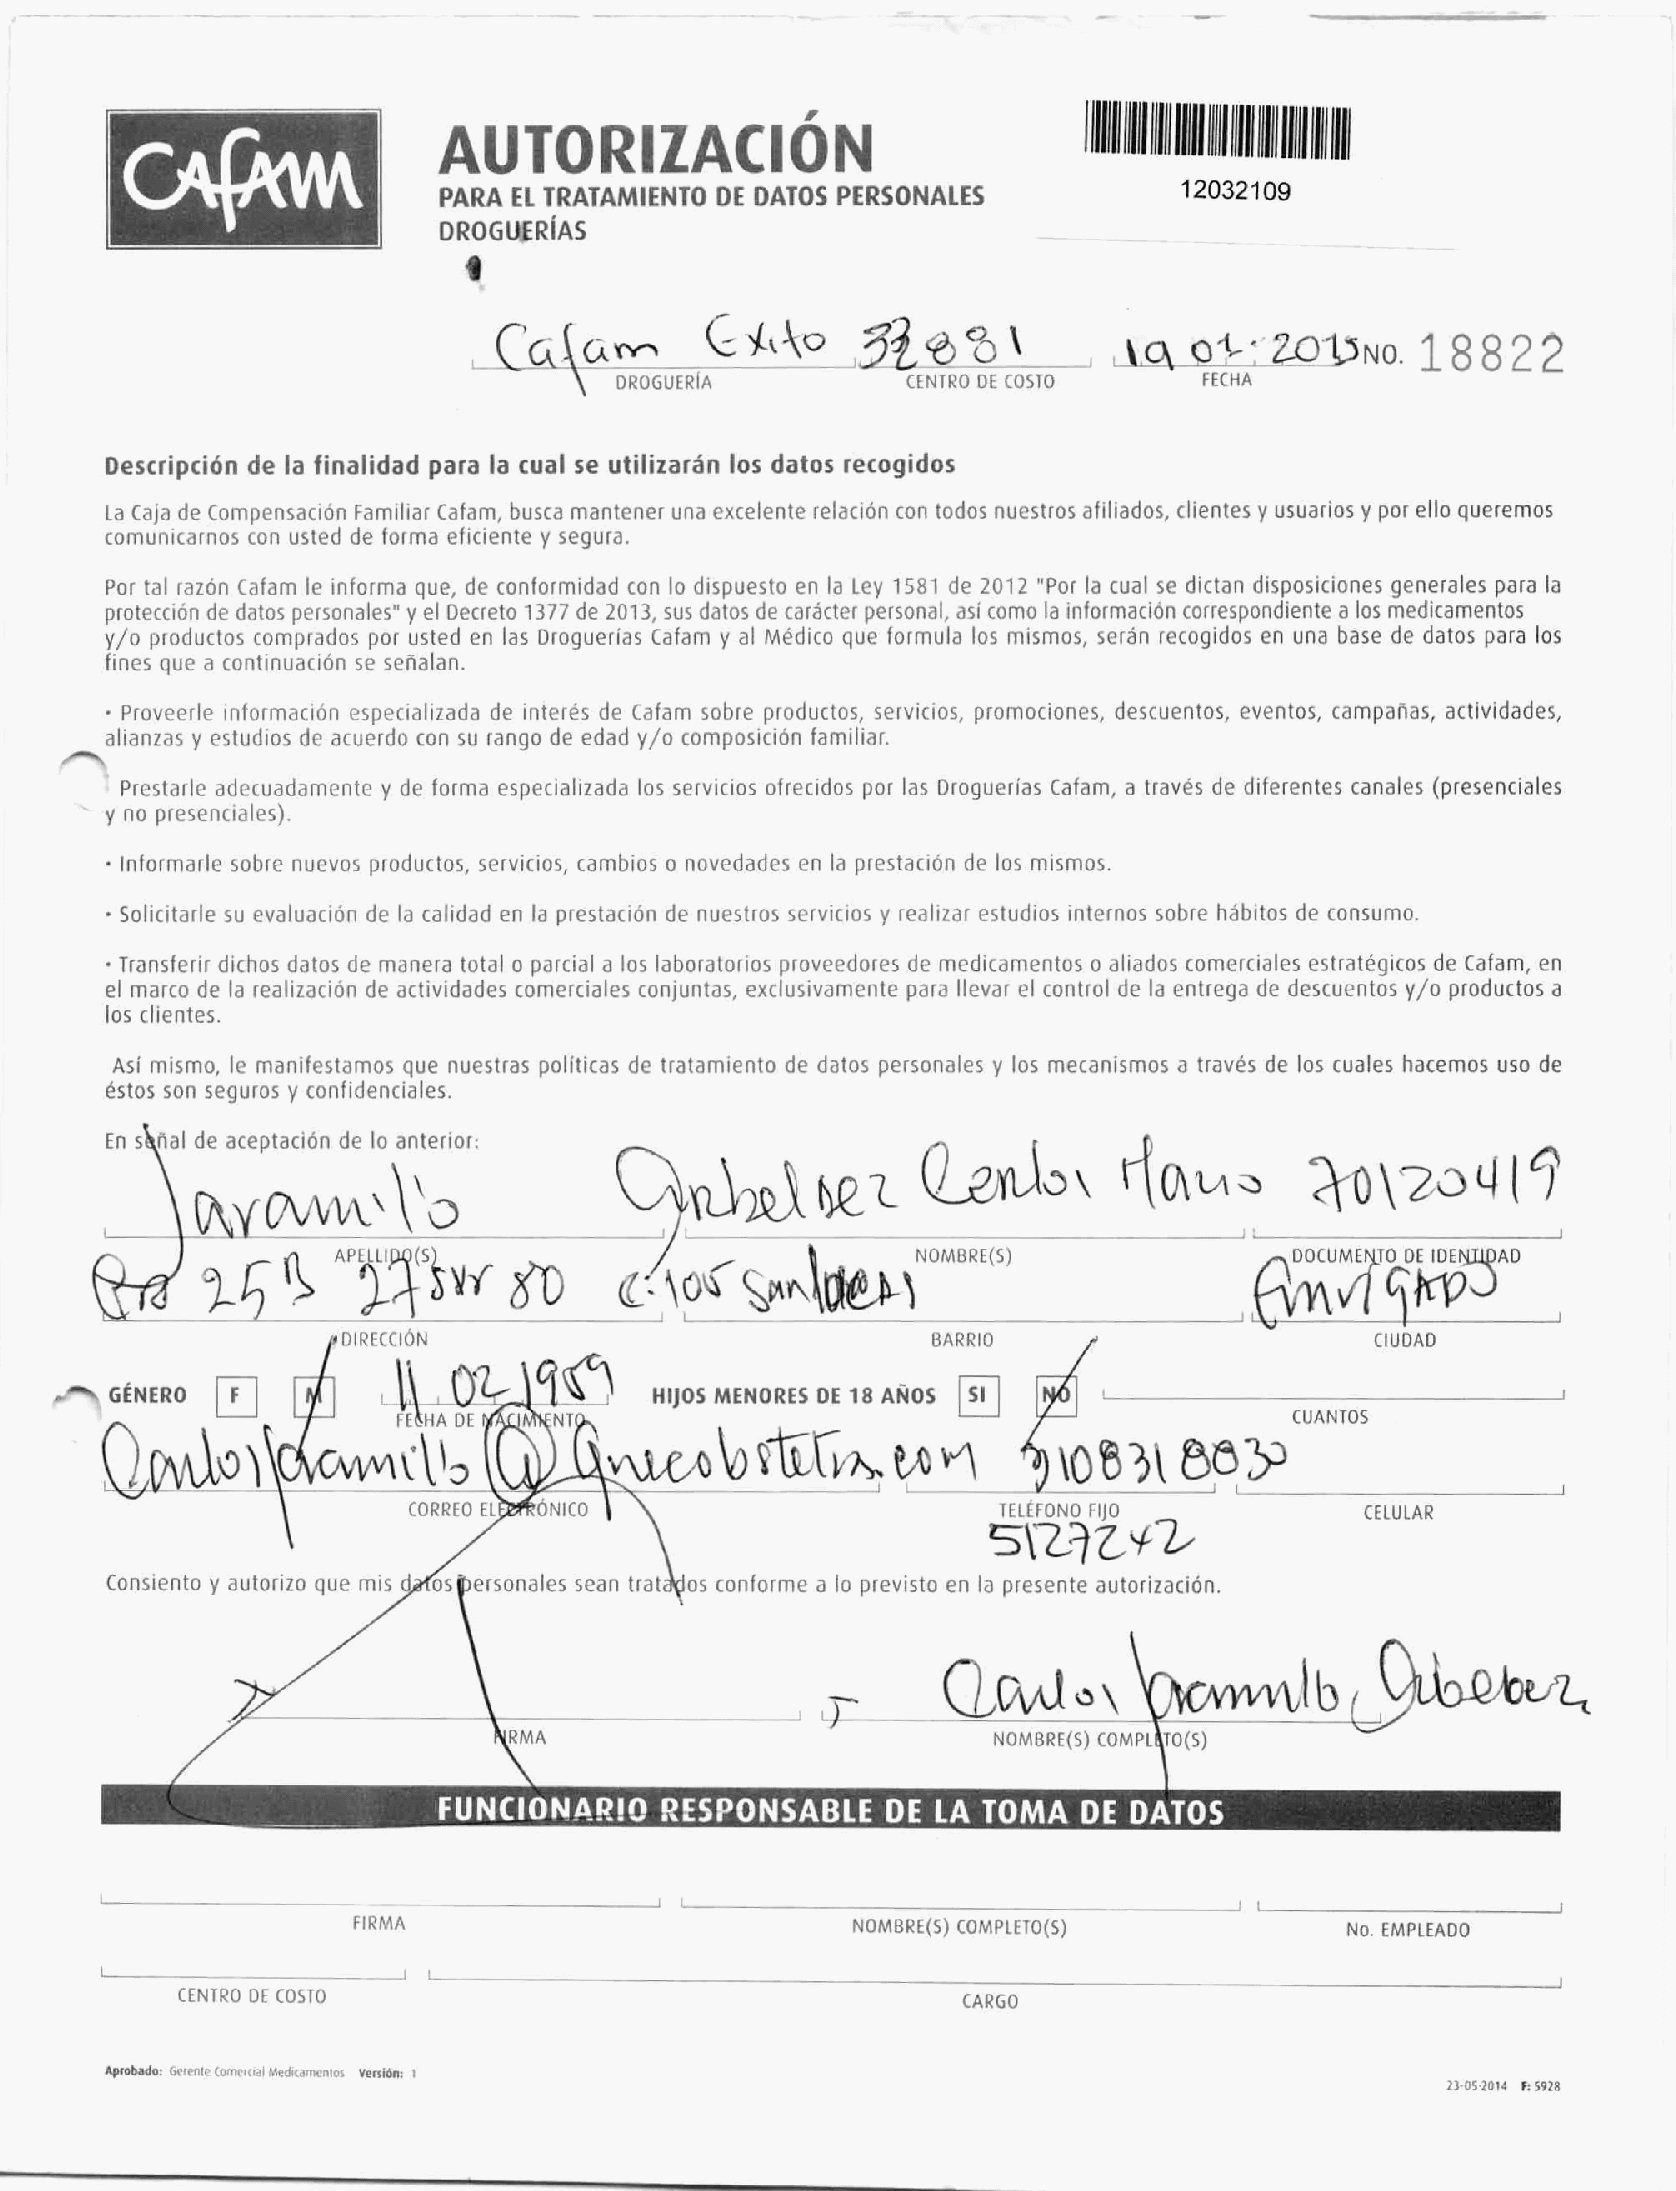 CAFAM
AUTORIZACIÓN
PARA EL TRATAMIENTO DE DATOS PERSONALES
DROGUERÍAS
12032109
Cafam Exito 881 19 2015 NO. 18822
DROGUERÍA CENTRO DE COSTO FECHA
Descripción de la finalidad para la cual se utilizarán los datos recogidos
La Caja de Compensación Familiar Cafam, busca mantener una excelente relación con todos nuestros afiliados, clientes y usuarios y por ello queremos
comunicarnos con usted de forma eficiente y segura.
Por tal razón Cafam le informa que, de conformidad con lo dispuesto en la Ley 1581 de 2012 "Por la cual se dictan disposiciones generales para la
protección de datos personales" y el Decreto 1377 de 2013, sus datos de carácter personal, así como la información correspondiente a los medicamentos
y/o productos comprados por usted en las Droguerías Cafam y al Médico que formula los mismos, serán recogidos en una base de datos para los
fines que a continuación se señalan.
· Proveerle información especializada de interés de Cafam sobre productos, servicios, promociones, descuentos, eventos, campañas, actividades,
alianzas y estudios de acuerdo con su rango de edad y/o composición familiar.
Prestarle adecuadamente y de forma especializada los servicios ofrecidos por las Droguerías Cafam, a través de diferentes canales (presenciales
y no presenciales).
· Informarle sobre nuevos productos, servicios, cambios o novedades en la prestación de los mismos.
· Solicitarle su evaluación de la calidad en la prestación de nuestros servicios y realizar estudios internos sobre hábitos de consumo.
· Transferir dichos datos de manera total o parcial a los laboratorios proveedores de medicamentos o aliados comerciales estratégicos de Cafam, en
el marco de la realización de actividades comerciales conjuntas, exclusivamente para llevar el control de la entrega de descuentos y/o productos a
los clientes.
Así mismo, le manifestamos que nuestras políticas de tratamiento de datos personales y los mecanismos a través de los cuales hacemos uso de
éstos son seguros y confidenciales.
En señal de aceptación de lo anterior:
Jaramillo Arbelaez Carlos Mario 70120419
APELLIDO(S) NOMBRE(S) DOCUMENTO DE IDENTIDAD
25B 27 Sur 80 C:105 San Envigado
DIRECCIÓN BARRIO CIUDAD
GÉNERO F M 11 02 1959 HIJOS MENORES DE 18 AÑOS SI NO
FECHA DE NACIMIENTO CUANTOS
Carlosjaramillo@ 3108318830
CORREO ELECTRÓNICO TELÉFONO FIJO CELULAR
5127242
Consiento y autorizo que mis datos personales sean tratados conforme a lo previsto en la presente autorización.
Carlos Jaramillo Arbelaez
FIRMA NOMBRE(S) COMPLETO(S)
FUNCIONARIO RESPONSABLE DE LA TOMA DE DATOS
FIRMA NOMBRE(S) COMPLETO(S) No. EMPLEADO
CENTRO DE COSTO CARGO
Aprobado: Gerente Comercial Medicamentos Versión: 1
23-05-2014 F: 5928